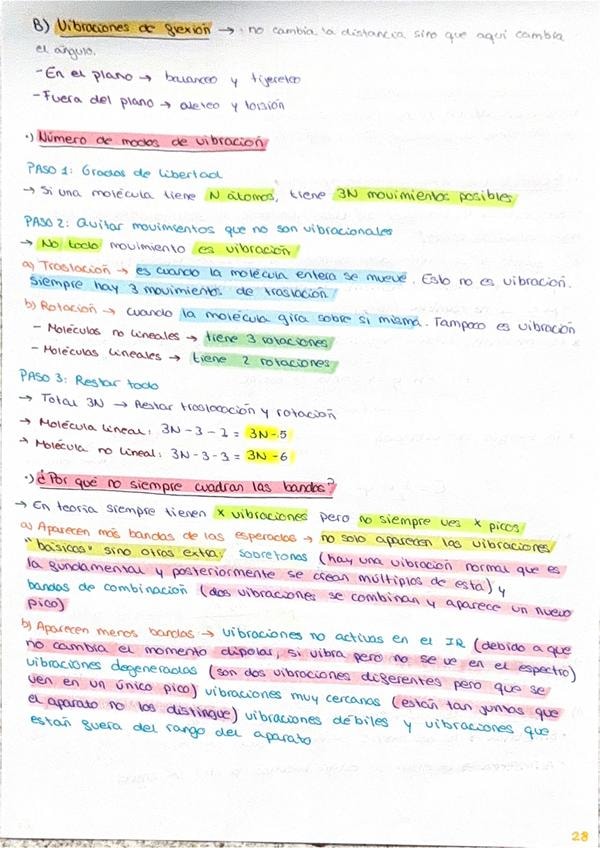 B) Vibraciones de flexión → no cambia la distancia sino que aquí cambia
el ángulo.
- En el plano → balanceo y tijereteo
- Fuera del plano → aleteo y torsión
·) Número de modos de vibración
PASO 1: Grados de libertad
→ Si una molécula tiene N átomos, tiene 3N movimientos posibles
PASO 2: Quitar movimientos que no son vibracionales
→ No todo movimiento es vibración
a) Traslación → es cuando la molécula entera se mueve. Esto no es vibración.
Siempre hay 3 movimientos de traslación
b) Rotación → cuando la molécula gira sobre si misma. Tampoco es vibración
- Moléculas no lineales → tiene 3 rotaciones
- Moléculas lineales → tiene 2 rotaciones
PASO 3: Restar todo
→ Total 3N → Restar traslocación y rotación
→ Molécula lineal: 3N-3-2 = 3N-5
→ Molécula no lineal: 3N-3-3 = 3N-6
·) ¿Por qué no siempre cuadran las bandas?
→ En teoría siempre tienen x vibraciones pero no siempre ves x picos
a) Aparecen más bandas de las esperadas → no solo aparecen las vibraciones
"básicas" sino otras extra: sobretonos (hay una vibración normal que es
la fundamental y posteriormente se crean múltiplos de esta) y
bandas de combinación (dos vibraciones se combinan y aparece un nuevo
pico)
b) Aparecen menos bandas → vibraciones no activas en el IR (debido a que
no cambia el momento dipolar, si vibra pero no se ve en el espectro)
vibraciones degeneradas (son dos vibraciones diferentes pero que se
ven en un único pico) vibraciones muy cercanas (están tan juntas que
el aparato no los distingue) vibraciones débiles y vibraciones que
están fuera del rango del aparato
28